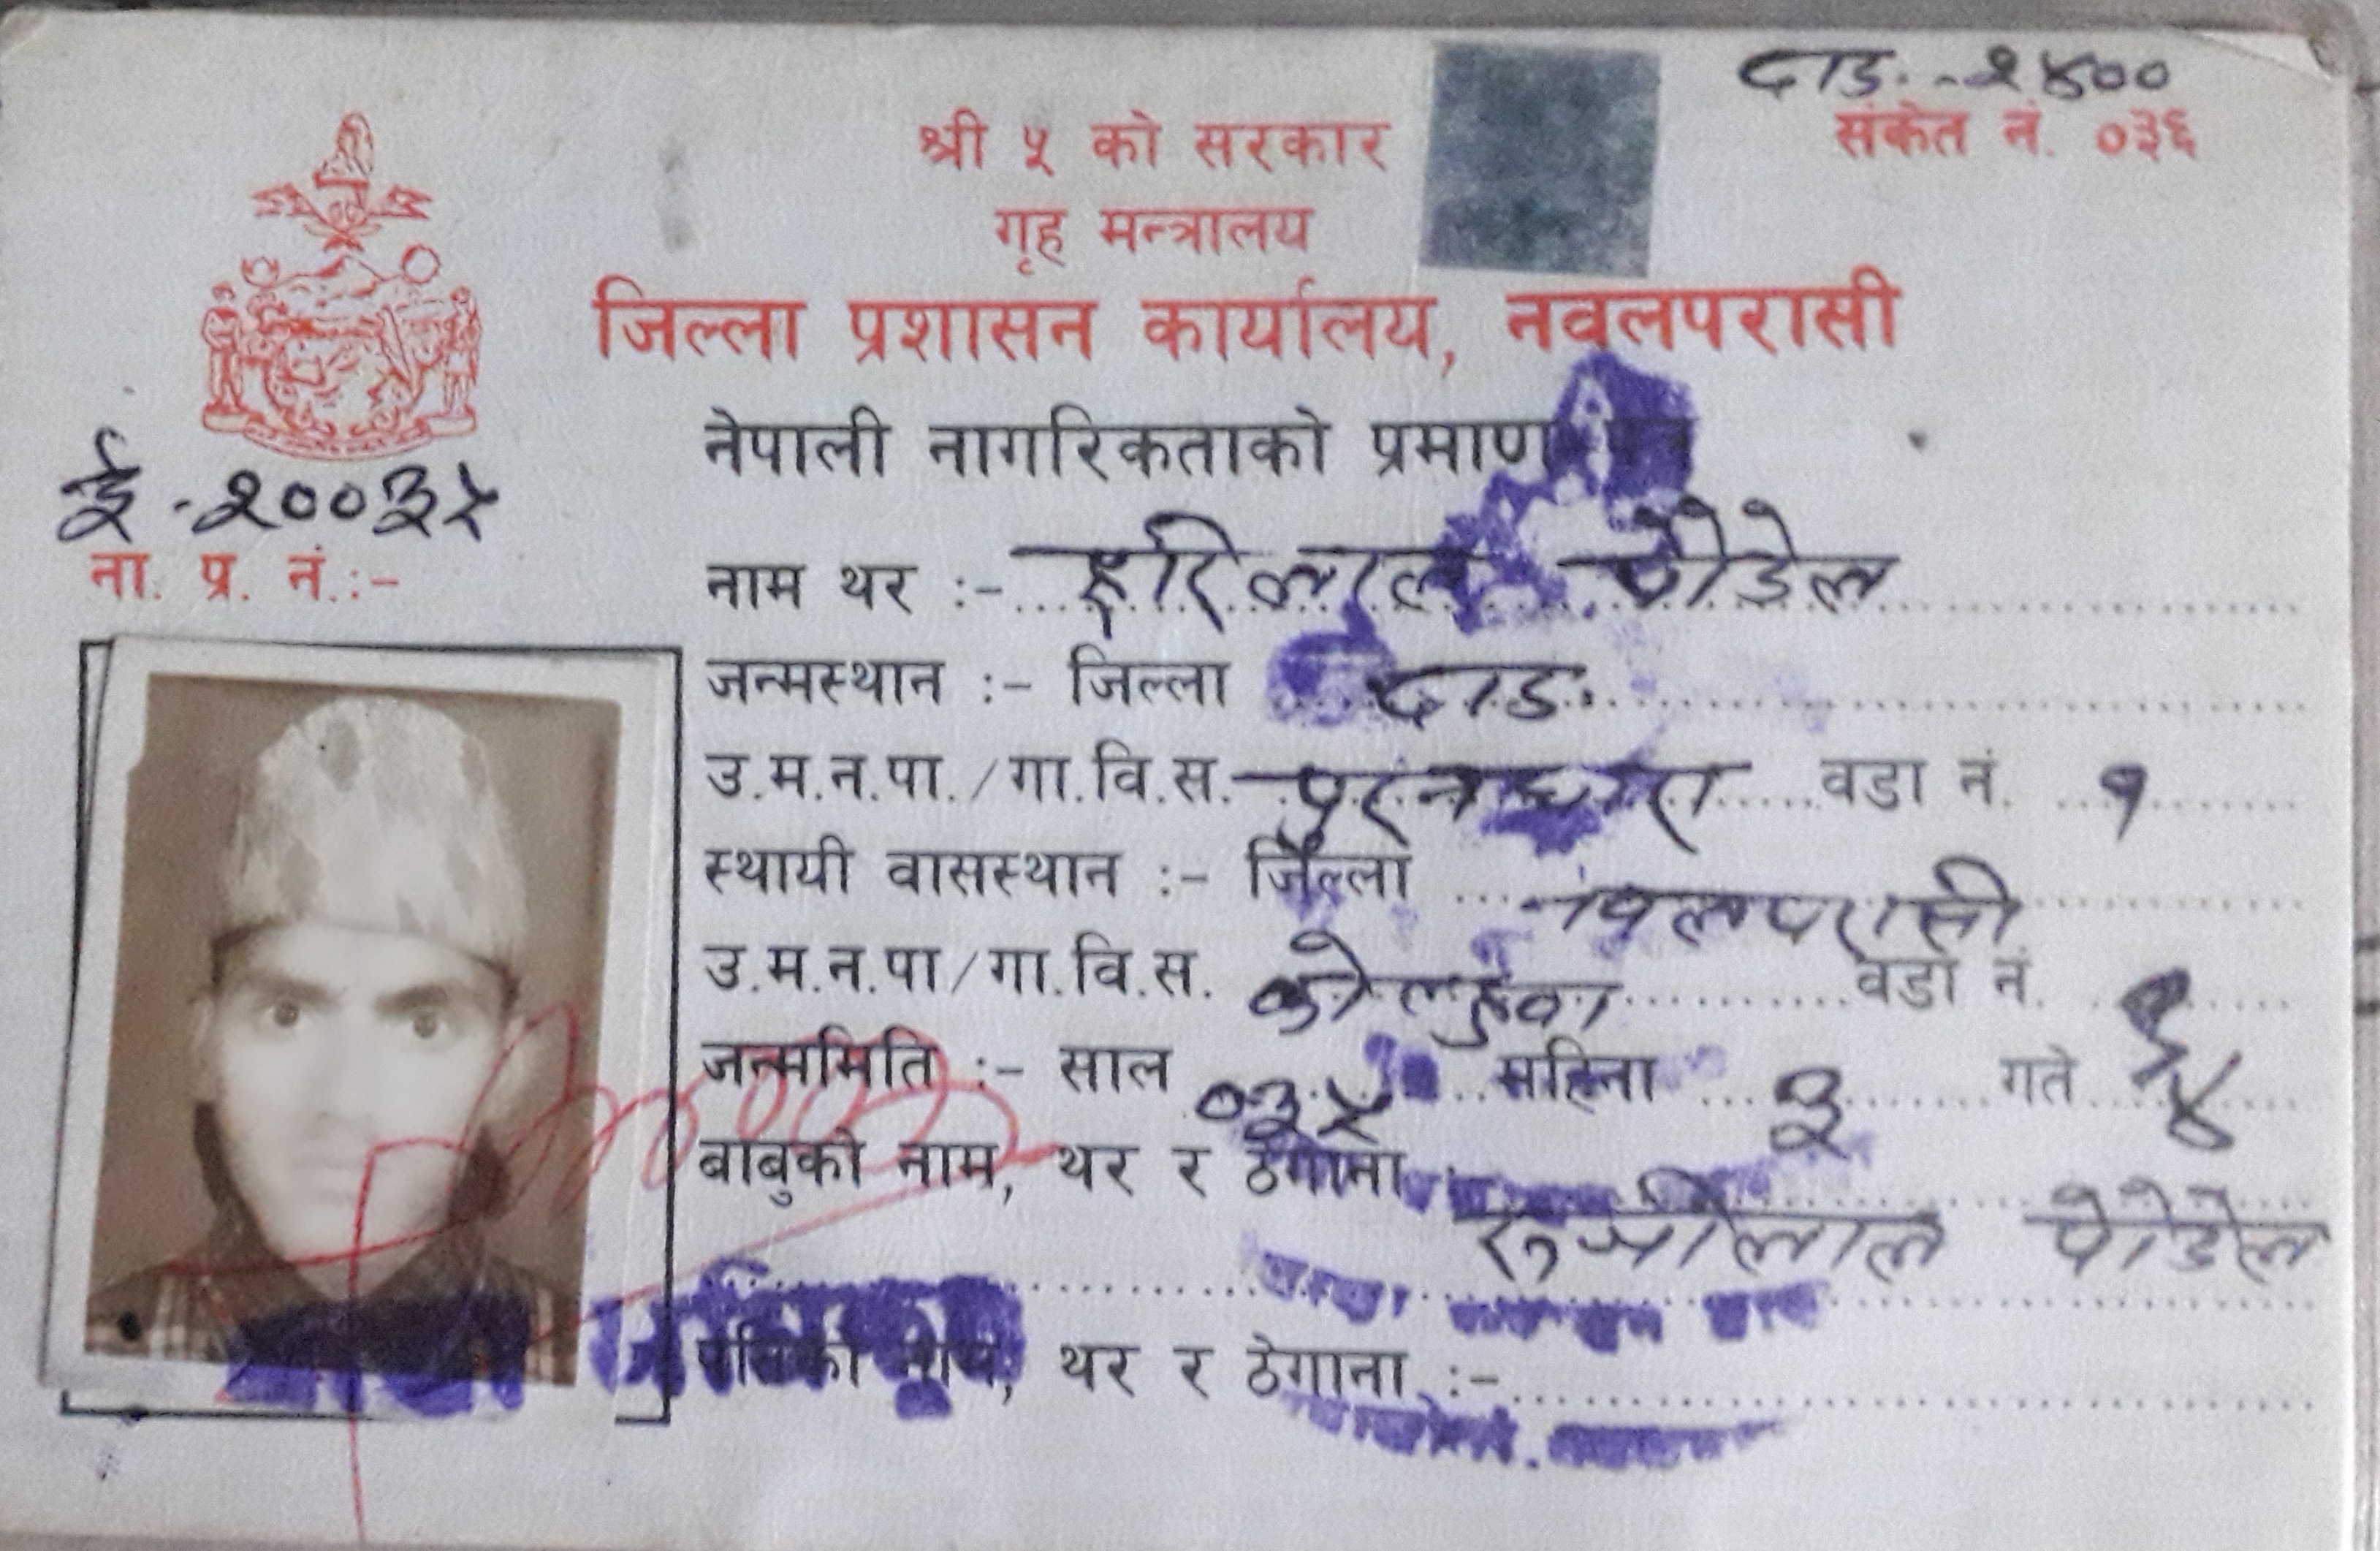 दाङ.-२४००
श्री ५ को सरकार
संकेत नं. ०३६
गृह मन्त्रालय
जिल्ला प्रशासन कार्यालय, नवलपरासी
नेपाली नागरिकताको प्रमाण
ई-२००३५
ना. प्र. नं.:-
नाम थर :- हरिलाल पौडेल
जन्मस्थान :- जिल्ला दाङ.
उ.म.न.पा./गा.वि.स. वडा नं. १
स्थायी वासस्थान :- जिल्ला नवलपरासी
उ.म.न.पा/गा.वि.स. कोल्हुवा वडा नं.
जन्ममिति :- साल ०३५ महिना ३ गते
बाबुको नाम, थर र ठेगाना
पौडेल
पतिको नाम, थर र ठेगाना :-